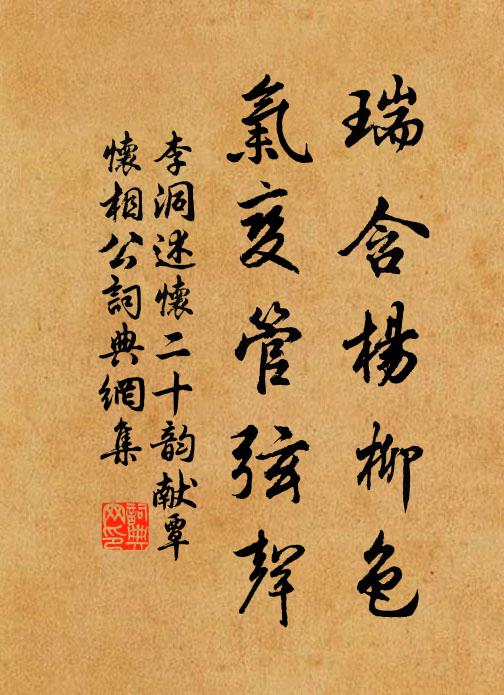 瑞含楊柳色
氣变管弦聲
李洞述懷二十韵献覃
懷相公詞典網集
詞典网印